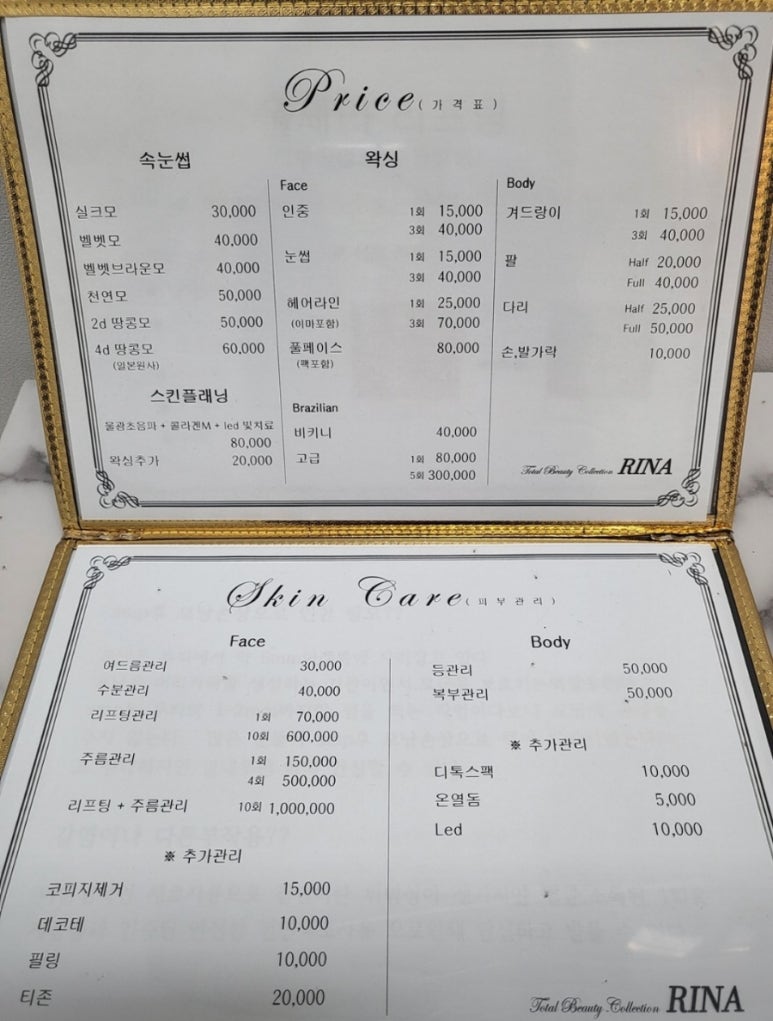 Price (가격표)
속눈썹
실크모 30,000
벨벳모 40,000
벨벳브라운모 40,000
천연모 50,000
2d 땅콩모 50,000
4d 땅콩모 60,000
(일본원사)
스킨플래닝
물광초음파 + 콜라겐M + led 빛치료
80,000
왁싱추가 20,000
왁싱
Face
인중 1회 15,000
3회 40,000
눈썹 1회 15,000
3회 40,000
헤어라인 1회 25,000
(이마포함) 3회 70,000
풀페이스 80,000
(팩포함)
Brazilian
비키니 40,000
고급 1회 80,000
5회 300,000
Body
겨드랑이 1회 15,000
3회 40,000
팔 Half 20,000
Full 40,000
다리 Half 25,000
Full 50,000
손,발가락 10,000
Total Beauty Collection RINA
Skin Care (피부관리)
Face
여드름관리 30,000
수분관리 40,000
리프팅관리 1회 70,000
10회 600,000
주름관리 1회 150,000
4회 500,000
리프팅 + 주름관리 10회 1,000,000
※ 추가관리
코피지제거 15,000
데코테 10,000
필링 10,000
티존 20,000
Body
등관리 50,000
복부관리 50,000
※ 추가관리
디톡스팩 10,000
온열돔 5,000
Led 10,000
Total Beauty Collection RINA